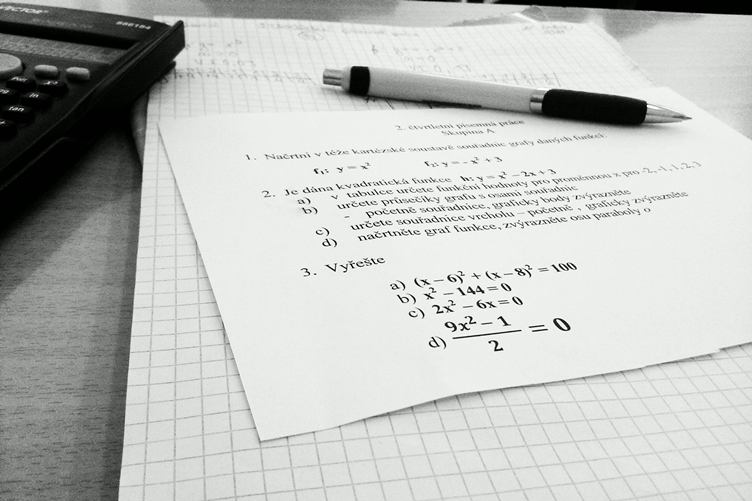 2. čtvrtletní písemná práce
Skupina A
1. Načrtni v téže kartézské soustavě souřadnic grafy daných funkcí:
f₁: y = x² f₂: y = -x² + 3
2. Je dána kvadratická funkce h: y = x² – 2x + 3
a) v tabulce určete funkční hodnoty pro proměnnou x pro -2, -1, 1, 2, 3
b) určete průsečíky grafu s osami souřadnic
- početně souřadnice, graficky body zvýrazněte
c) určete souřadnice vrcholu – početně , graficky zvýrazněte
d) načrtněte graf funkce, zvýrazněte osu paraboly o
3. Vyřešte
a) (x – 6)² + (x – 8)² = 100
b) x² – 144 = 0
c) 2x² – 6x = 0
d) 9x² – 1 / 2 = 0
tan